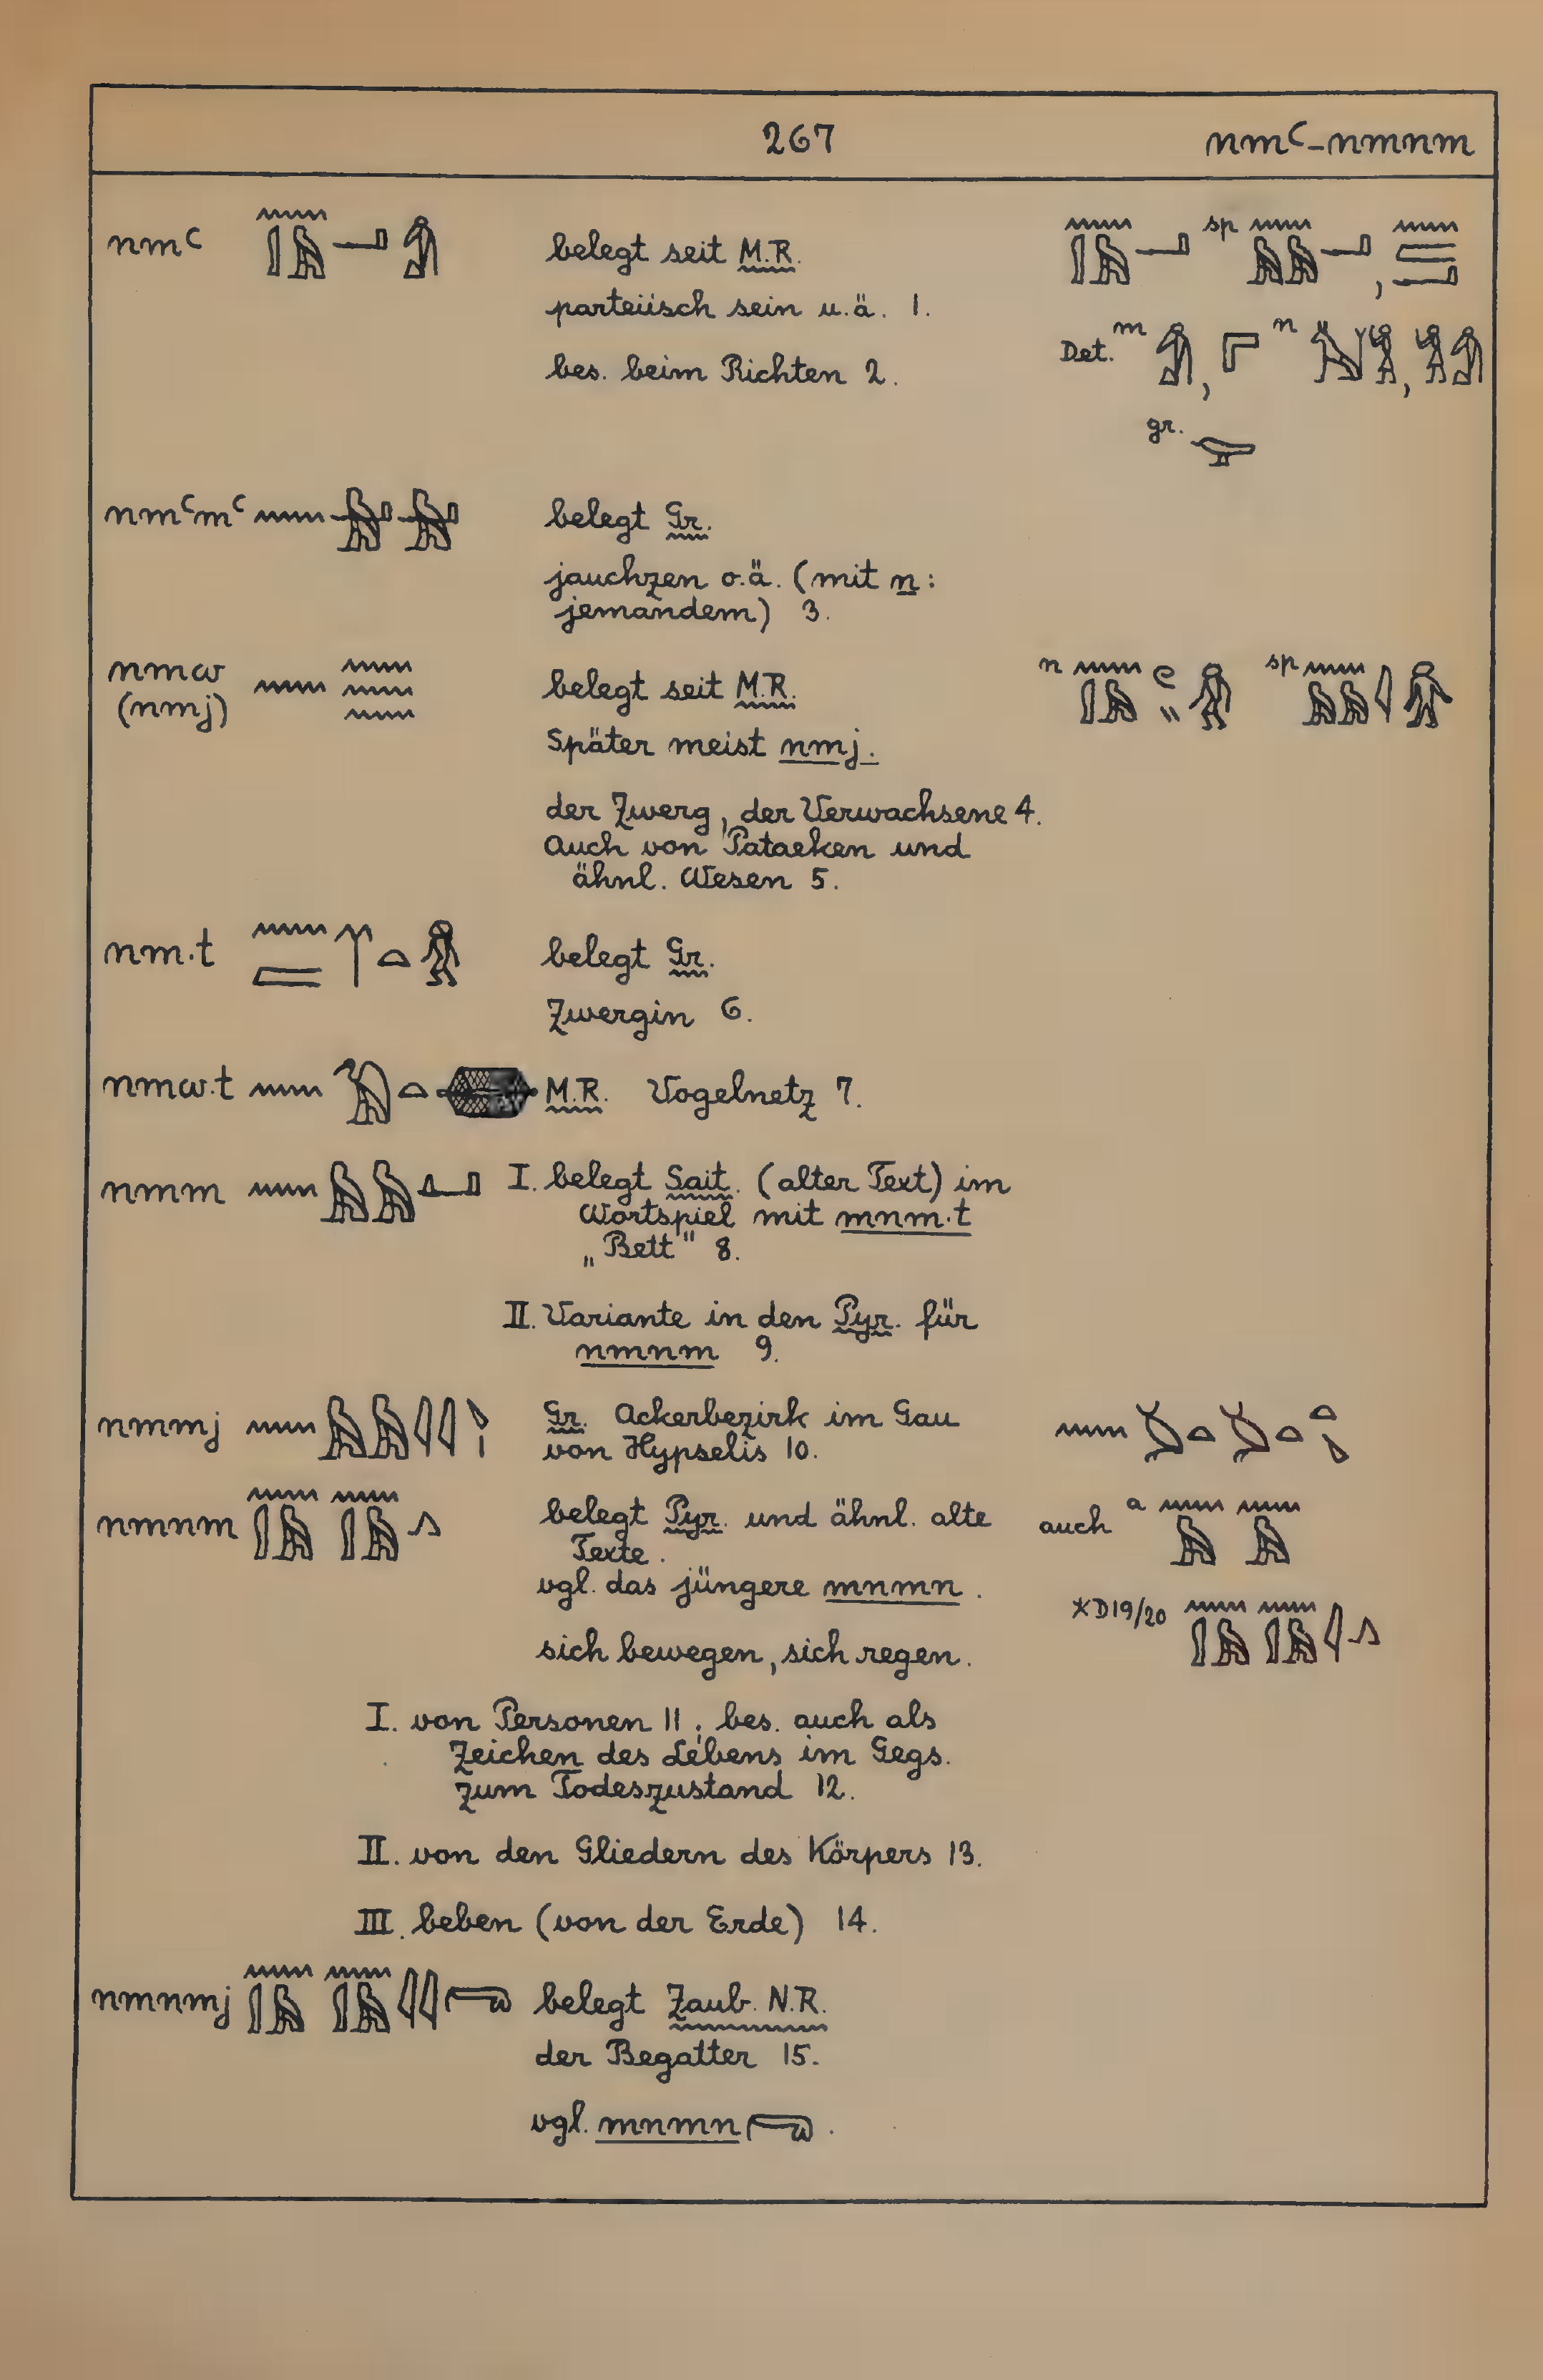 267 nmꜥ-nmnm
nmꜥ belegt seit M.R. sp
parteiisch sein u.ä. 1.
bes. beim Richten 2. Det. m , n ,
gr.
nmꜥmꜥ belegt Gr.
jauchzen o.ä. (mit n:
jemandem) 3.
nmw belegt seit M.R. n sp
(nmj)
Später meist nmj.
der Zwerg, der Verwachsene 4.
Auch von Pataeken und
ähnl. Wesen 5.
nm.t belegt Gr.
Zwergin 6.
nmw.t M.R. Vogelnetz 7.
nmm I. belegt Sait. (alter Text) im
Wortspiel mit mnm.t
„Bett" 8.
II. Variante in den Pyr. für
nmnm 9.
nmmj Gr. Ackerbezirk im Gau
von Hypselis 10.
nmnm belegt Pyr. und ähnl. alte auch a
Texte.
vgl. das jüngere mnmn.
*D19/20
sich bewegen, sich regen.
I. von Personen 11; bes. auch als
Zeichen des Lebens im Gegs.
zum Todeszustand 12.
II. von den Gliedern des Körpers 13.
III. beben (von der Erde) 14.
nmnmj belegt Zaub. N.R.
der Begatter 15.
vgl. mnmn .